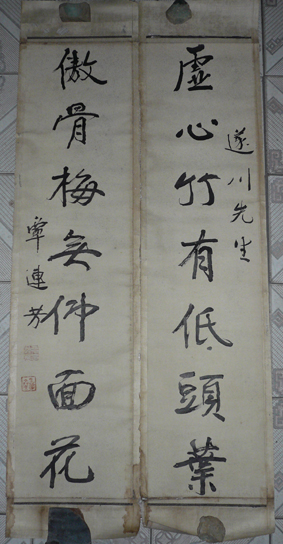 遂川先生
虛心竹有低頭葉
傲骨梅無仰面花
覃連芳